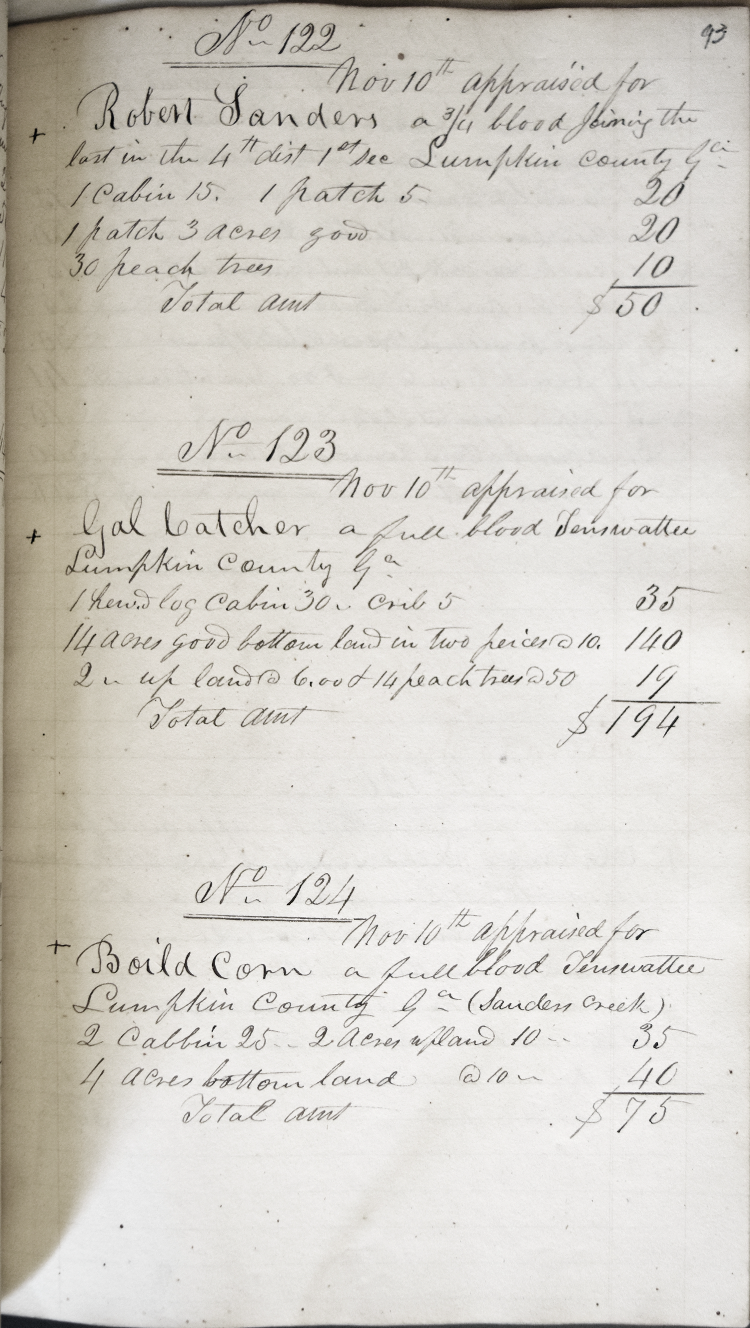 93
No 122
Nov 10th appraised for
+ Robert Sanders a 3/4 blood Joining the
last in the 4th dist 1st sec Lumpkin county Ga
1 Cabin 15. 1 patch 5 20
1 patch 3 acres good 20
30 peach trees 10
Total amt $50
No 123
Nov 10th appraised for
+ Gal Catcher a full blood Tenswattee
Lumpkin County Ga
1 hewd log Cabin 30 " Crib 5 35
14 acres good bottom land in two peices @ 10. 140
2 " up land @ 6.00 & 14 peach trees @ 50 19
Total amt $194
No 124
Nov 10th appraised for
+ Boild Corn a full blood Tenswattee
Lumpkin County Ga (Sanders Creek)
2 Cabbin 25 - 2 Acres upland 10 -- 35
4 acres bottom land @ 10 " 40
Total amt $75